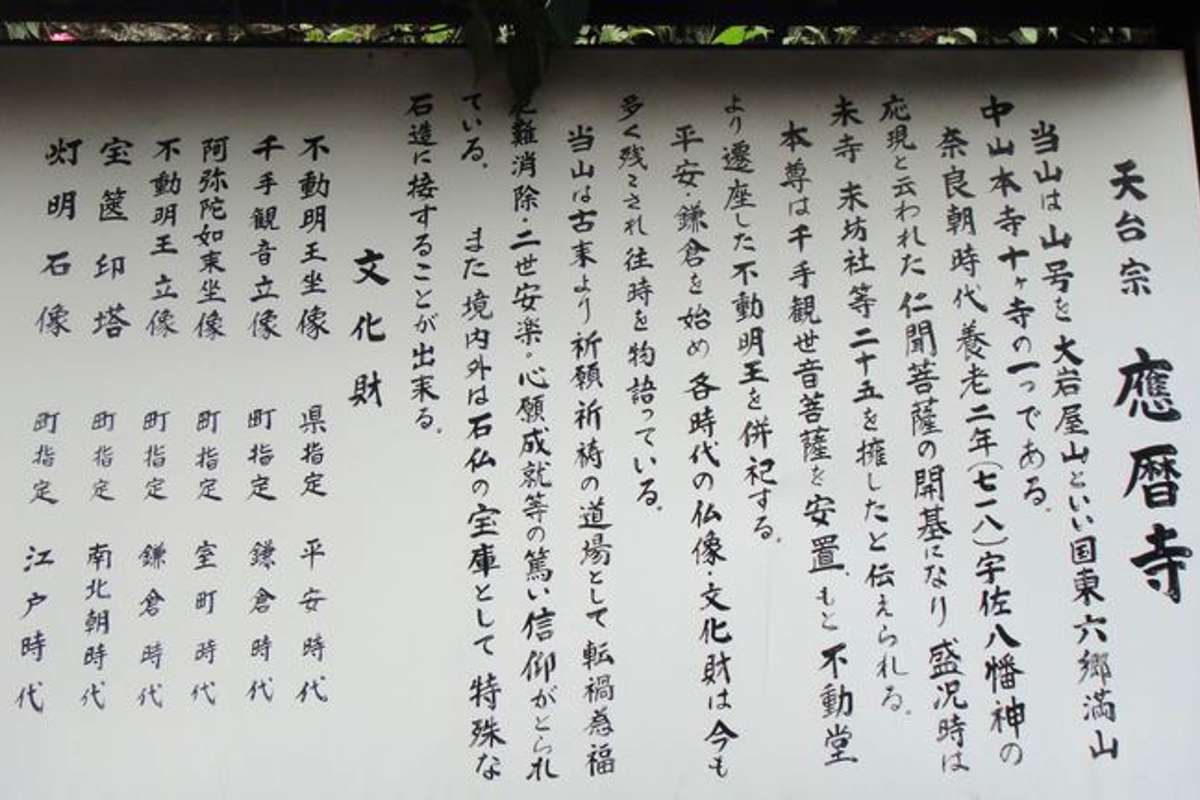 天台宗 應暦寺
当山は山号を大岩屋山といい国東六郷満山
中山本寺十ヶ寺の一つである。
奈良朝時代養老二年(七一八)宇佐八幡神の
応現と云われた仁聞菩薩の開基になり 盛況時は
末寺 末坊社等二十五を擁したと伝えられる。
本尊は千手観世音菩薩を安置、もと不動堂
より遷座した不動明王を併祀する。
平安・鎌倉を始め各時代の仏像・文化財は今も
多く残され往時を物語っている。
当山は古来より祈願祈祷の道場として転禍為福
難消除・二世安楽・心願成就等の篤い信仰がとられ
ている。 また境内外は石仏の宝庫として特殊な
石造に接することが出来る。
文化財
不動明王坐像 県指定 平安時代
千手観音立像 町指定 鎌倉時代
阿弥陀如来坐像 町指定 室町時代
不動明王立像 町指定 鎌倉時代
宝篋印塔 町指定 南北朝時代
灯明石像 町指定 江戸時代